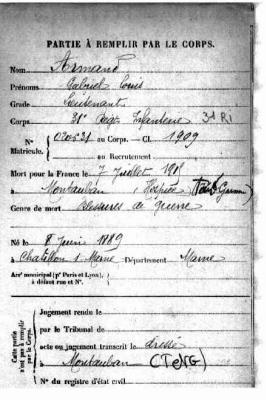 PARTIE À REMPLIR PAR LE CORPS.
Nom Armand
Prénoms Gabriel Louis
Grade Lieutenant
Corps 31e Rég. Infanterie 31 RI
N° Matricule. au Corps. — Cl. 1909
au Recrutement
Mort pour la France le 7 Juillet
à Montauban (Hospice)
Genre de mort Blessures de guerre
Né le 8 Juin 1889
à Chatillon s. Marne Département Marne
Arrt municipal (pr Paris et Lyon),
à défaut rue et N°.
Cette partie n'est pas à remplir par le Corps.
Jugement rendu le
par le Tribunal de
acte ou jugement transcrit le dressé
à Montauban (TetNG)
N° du registre d'état civil